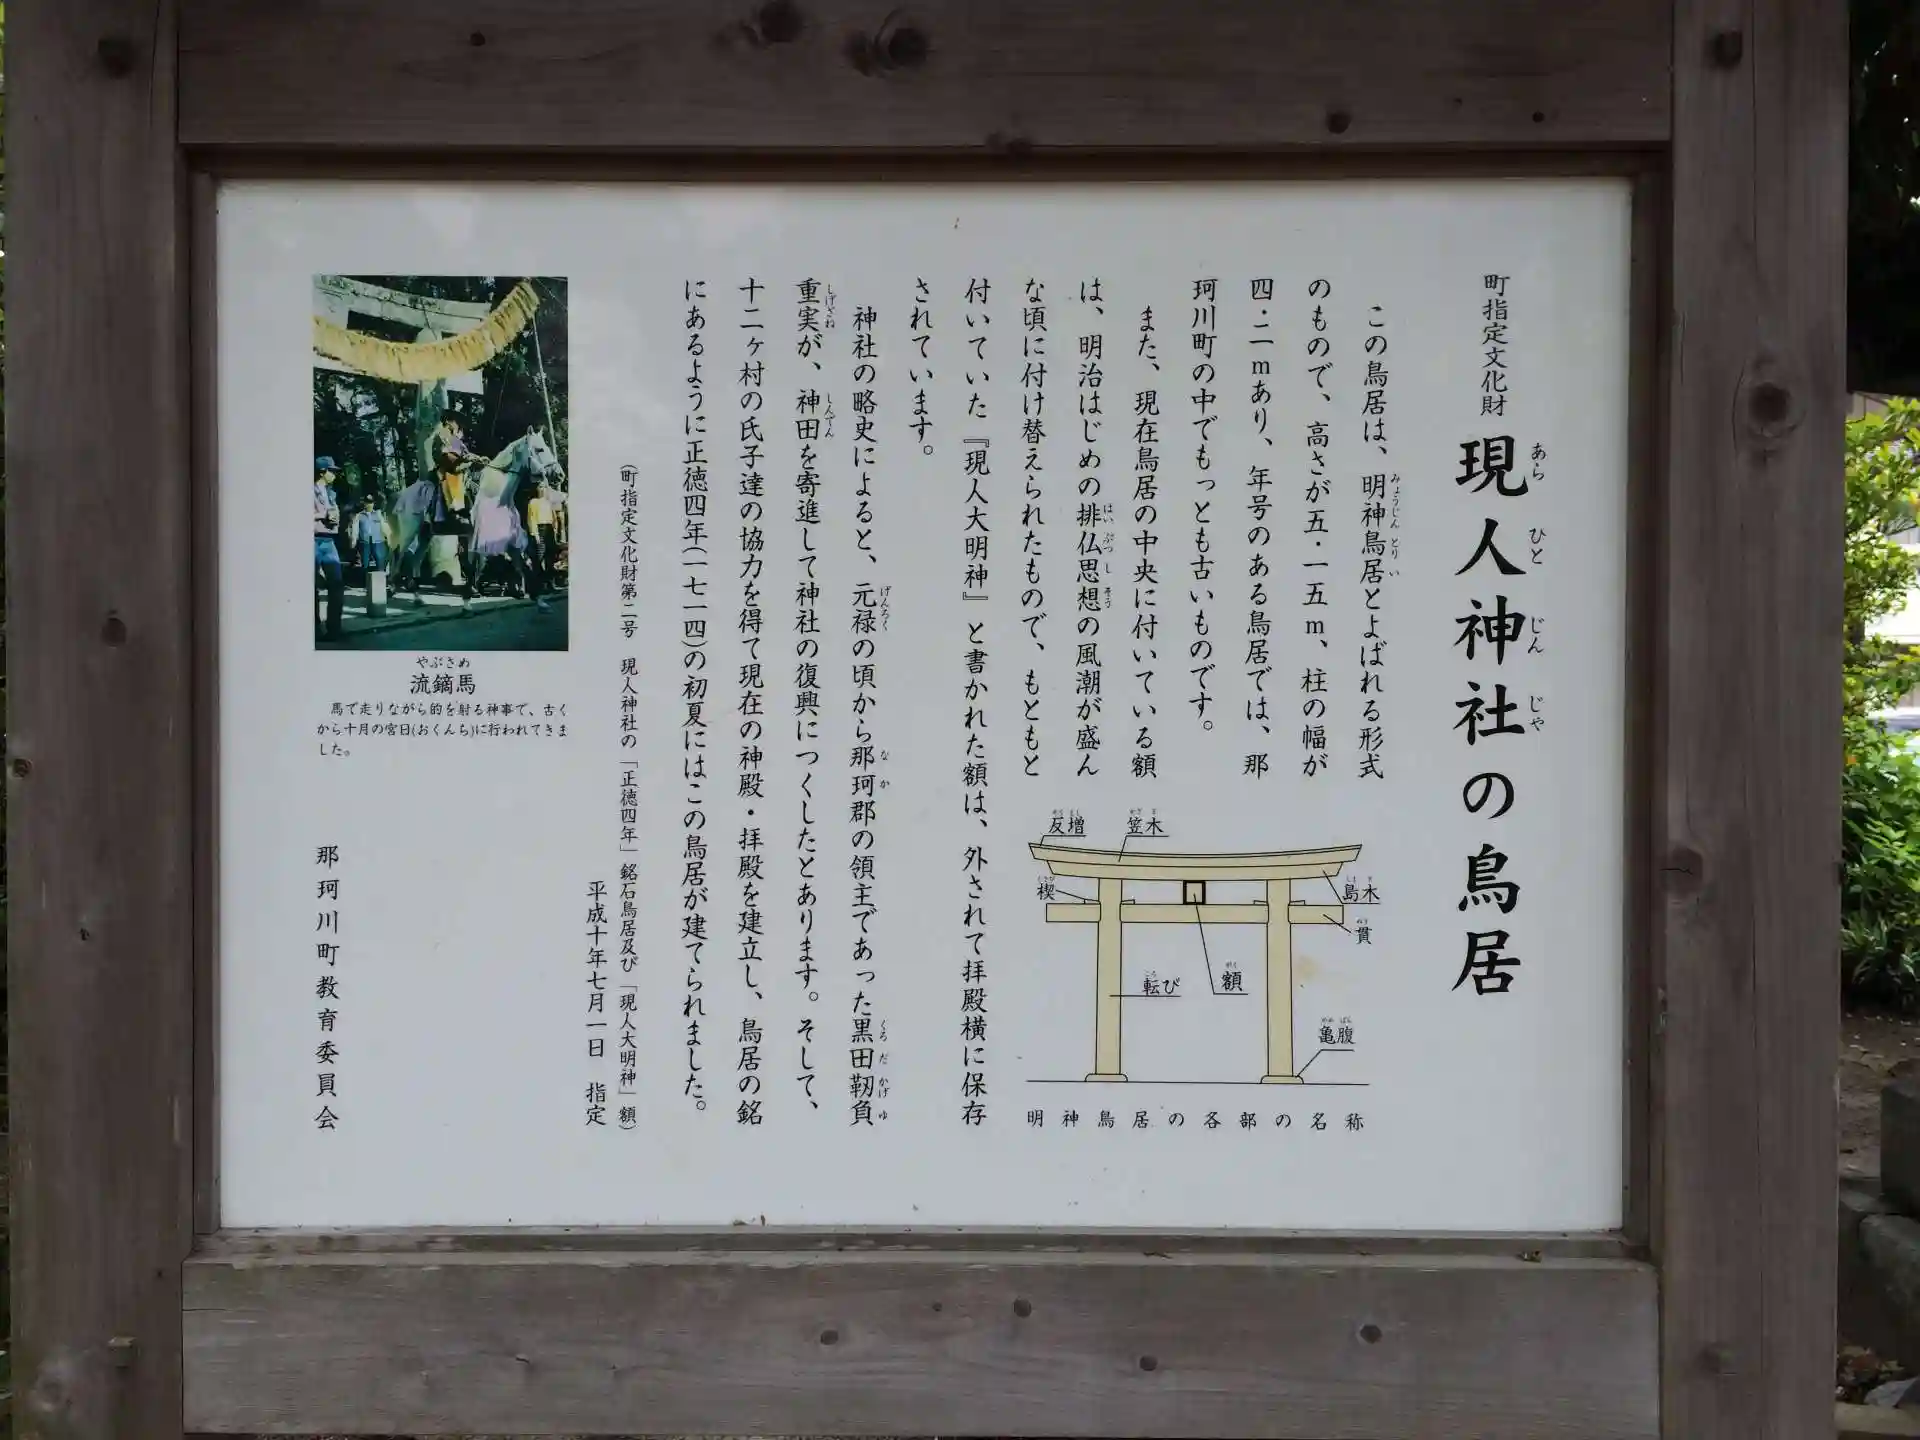 町指定文化財 現人神社の鳥居
あら ひと じん じゃ
この鳥居は、明神鳥居とよばれる形式
のもので、高さが五・一五m、柱の幅が
四・二mあり、年号のある鳥居では、那
珂川町の中でもっとも古いものです。
また、現在鳥居の中央に付いている額
は、明治はじめの排仏思想の風潮が盛ん
な頃に付け替えられたもので、もともと
付いていた『現人大明神』と書かれた額は、外されて拝殿横に保存
されています。
神社の略史によると、元禄の頃から那珂郡の領主であった黒田靭負
重実が、神田を寄進して神社の復興につくしたとあります。そして、
十二ヶ村の氏子達の協力を得て現在の神殿・拝殿を建立し、鳥居の銘
にあるように正徳四年(一七一四)の初夏にはこの鳥居が建てられました。
(町指定文化財第二号 現人神社の「正徳四年」銘石鳥居及び「現人大明神」額)
平成十年七月一日 指定
反増
笠木
楔
島木
貫
額
転び
亀腹
明神鳥居の各部の名称
やぶさめ
流鏑馬
馬で走りながら的を射る神事で、古く
から十月の宮日(おくんち)に行われてきま
した。
那珂川町教育委員会